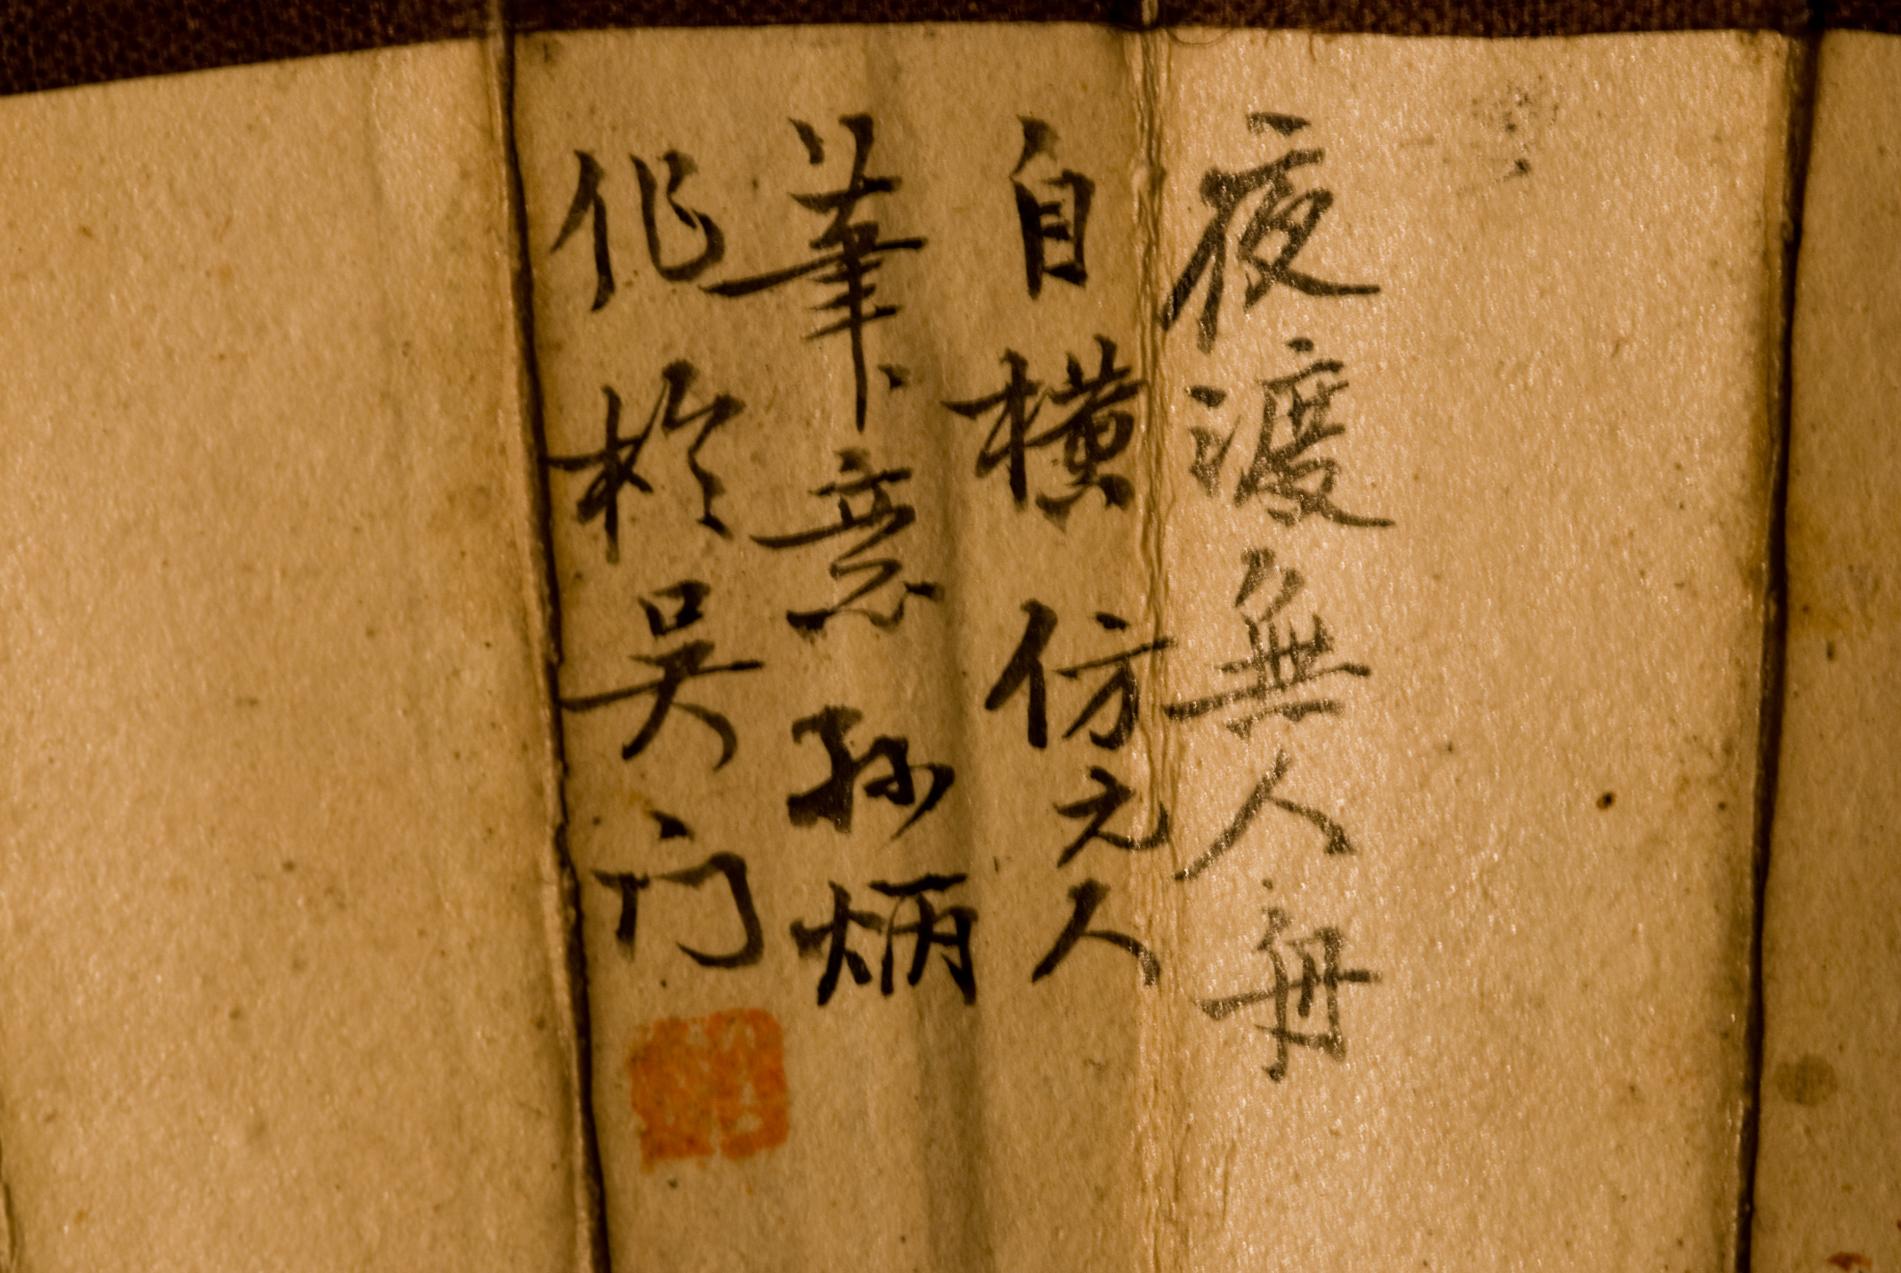 夜渡無人舟
自橫仿元人
筆意孫炳
作於吳门